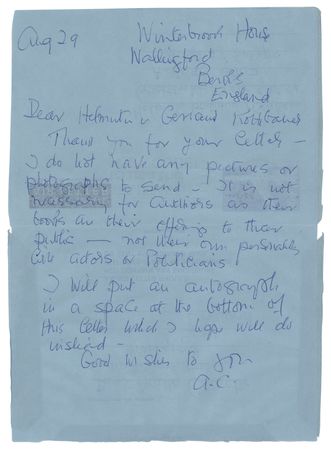 Aug 29
Winterbrook House
Wallingford
Berks
England
Dear Helmuth & Gerland
Thank you for your letter –
I do not have any pictures or
photographs to send – It is not
necessary for Authors as their
books are their offering to their
public — not their own personality
like actors or Politicians
I will put an autograph
in a space at the bottom of
this letter which I hope will do
instead –
Good wishes to you
A.C.